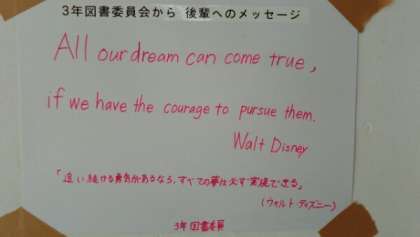 3年図書委員会から 後輩へのメッセージ
All our dream can come true,
if we have the courage to pursue them.
Walt Disney
「追い続ける勇気があるなら、すべての夢は必ず実現できる」
(ウォルト・ディズニー)
3年 図書委員